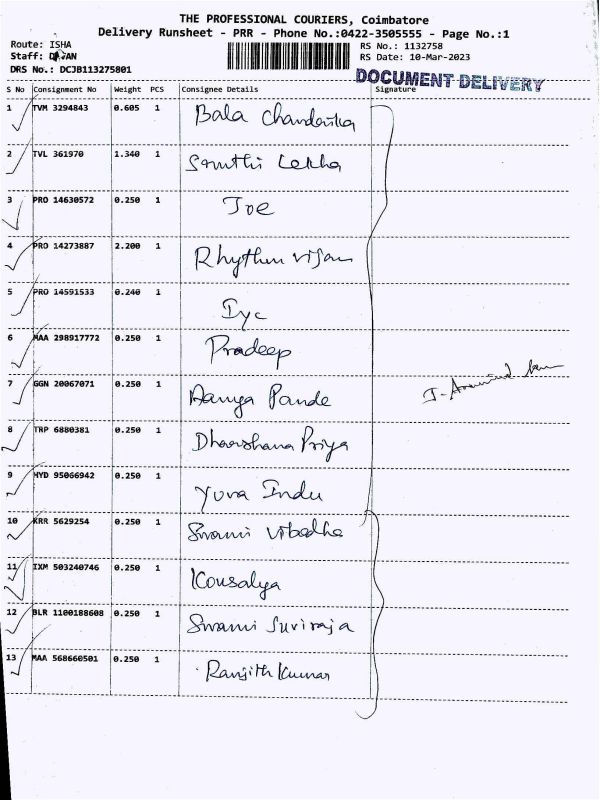 THE PROFESSIONAL COURIERS, Coimbatore
Delivery Runsheet - PRR - Phone No.:0422-3505555 - Page No.:1
Route: ISHA RS No.: 1132758
Staff: RS Date: 10-Mar-2023
DRS No.: DCJB113275801 DOCUMENT DELIVERY
S No Consignment No Weight PCS Consignee Details Signature
1 TVM 3294843 0.605 1 Bala Chandarika
2 TVL 361970 1.340 1 Smuthi Lekha
3 PRO 14630572 0.250 1 Joe
4 PRO 14273887 2.200 1 Rhythm
5 PRO 14591533 0.240 1 Iyc
6 MAA 298917772 0.250 1 Pradeep
7 GGN 20067071 0.250 1 Ramya Pande
8 TRP 6880381 0.250 1 Dharshana Priya
9 HYD 95066942 0.250 1 Yuva Indu
10 KRR 5629254 0.250 1 Swami Vibodha
11 IXM 503240746 0.250 1 Kousalya
12 BLR 1100188608 0.250 1 Swami Suviraja
13 MAA 568660501 0.250 1 Ranjith Kumar